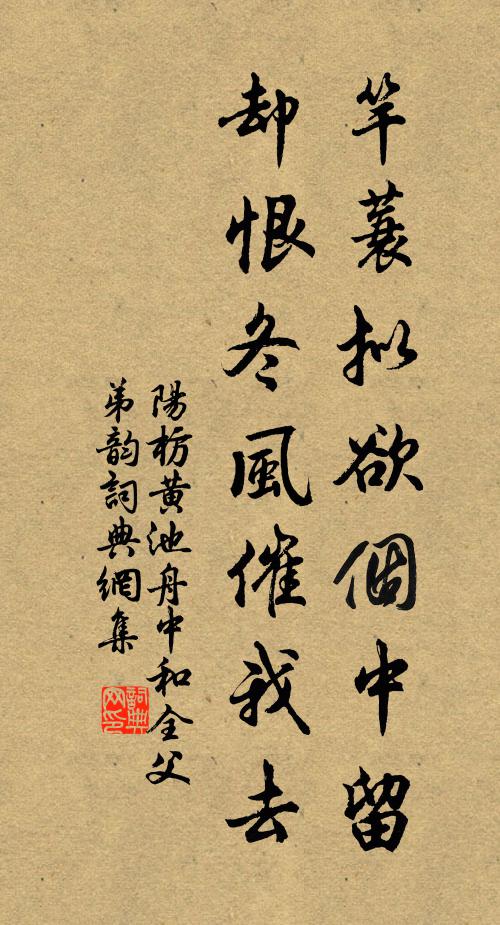 竿蓑拟欲個中留
却恨冬風催我去
陽枋黄池舟中和全父
弟韵詞典網集
詞典网印